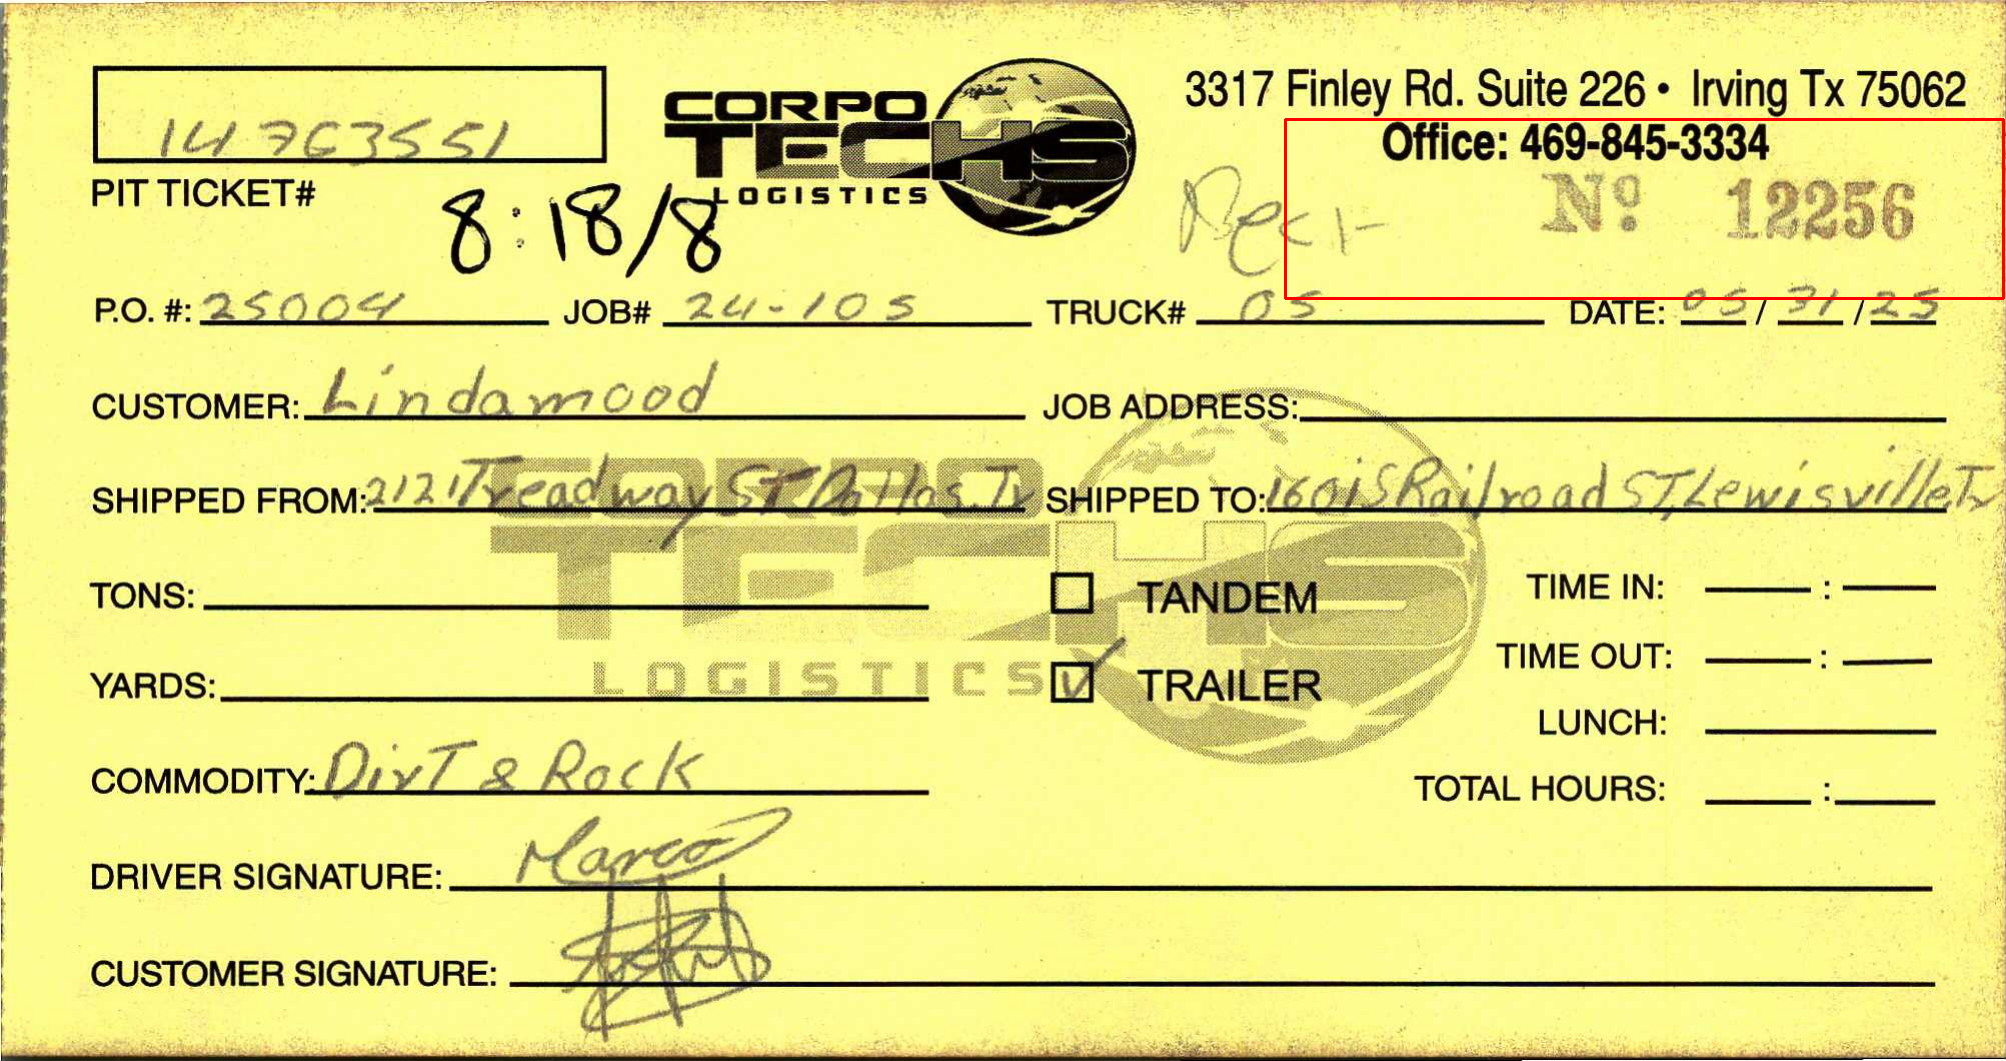 14763551
PIT TICKET#
8:18/8
CORPO
TECHS
LOGISTICS
3317 Finley Rd. Suite 226 • Irving Tx 75062
Office: 469-845-3334
Nº 12256
P.O. #: 25004 JOB# 24-105 TRUCK# 05 DATE: 05/31/25
CUSTOMER: Lindamood JOB ADDRESS:
SHIPPED FROM: 2121 Treadway ST Dallas, Tx SHIPPED TO: 1601 S Railroad ST, Lewisville Tx
CORPO
TECHS
LOGISTICS
TONS: TANDEM TIME IN: :
TIME OUT: :
YARDS: TRAILER
LUNCH:
COMMODITY: Dirt & Rock TOTAL HOURS: :
DRIVER SIGNATURE: Marco
CUSTOMER SIGNATURE: